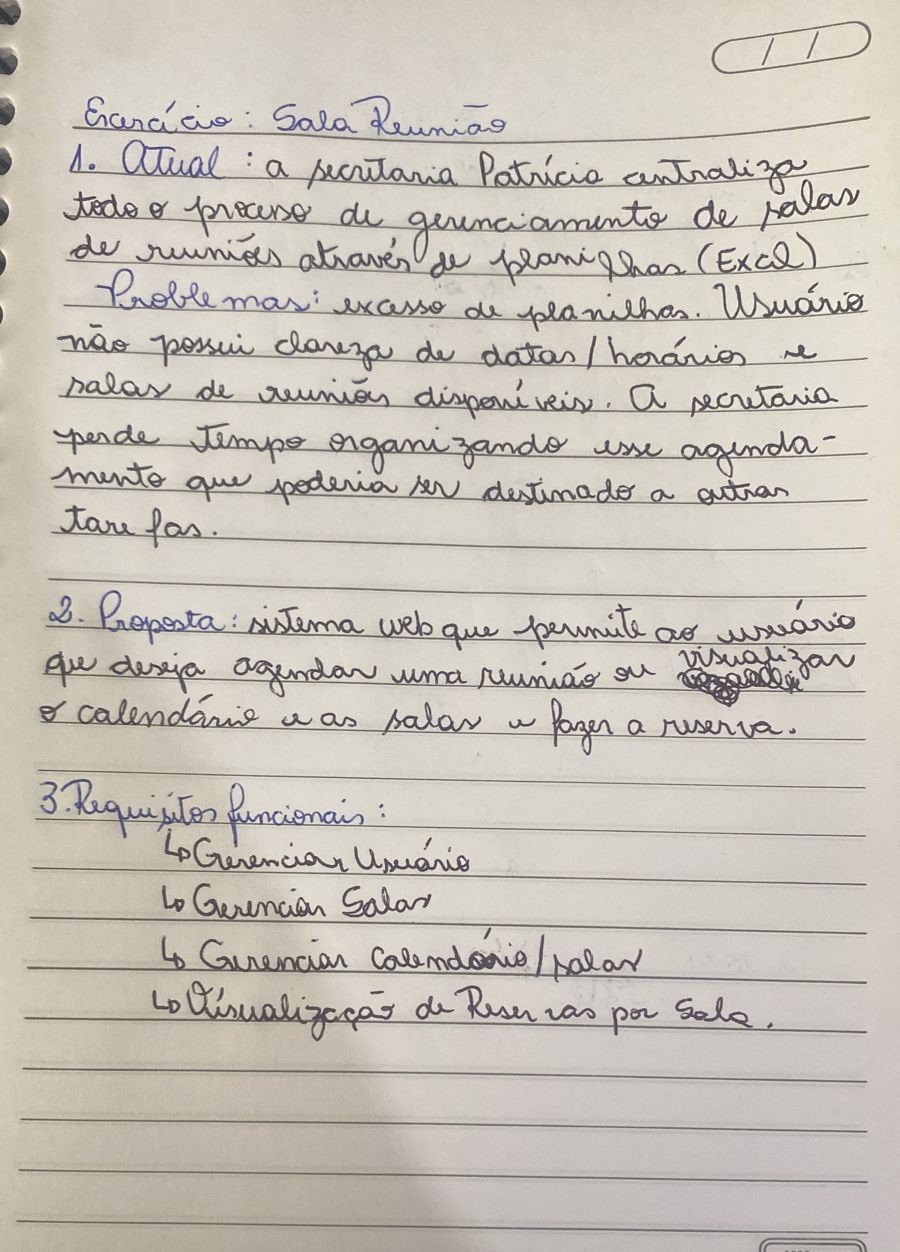 Exercício: Sala Reunião
1. Atual: a secretaria Patrícia centraliza
todo o processo de gerenciamento de salas
de reuniões através de planilhas (Excel)
Problemas: excesso de planilhas. Usuário
não possui clareza de datas/horários e
salas de reuniões disponíveis. A secretária
perde tempo organizando esse agenda-
mento que poderia ser destinado a outras
tarefas.
2. Proposta: sistema web que permite ao usuário
que deseja agendar uma reunião ou visualizar
o calendário e as salas e fazer a reserva.
3. Requisitos funcionais:
↳ Gerenciar Usuário
↳ Gerenciar Salas
↳ Gerenciar Calendário/salas
↳ Visualização de Reservas por Sala.